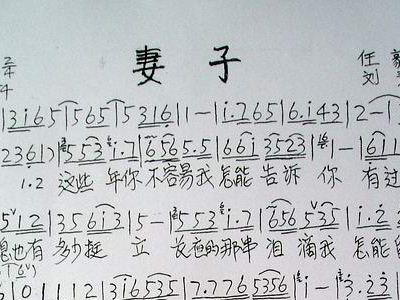 妻 子
2/4
任
刘
|3 i 6 5 |5 6 5 5 3 1 6 |1 — |i. 7 6 5 |6. i 4 3 |2 —
2 3 6 1 |5 5 3 i. 7 |6 5 6 5. 5 |6 6 i 3 5 2 3 |1 — |6 1 1
1.2 这些 年你 不容易我 怎能 告诉 你 有过
5 1 2 |3 5 6 i 3 |5 — |5 5 3 i. 7 |6 5 6 5 3 5 |i. 2
也有 多少挺 立 长夜的那串 泪 滴我 怎能
6 1 0 1 1 1 2 |3 i 6 5 3 5 |7. 7 7 6 5 3 5 6 |i — |3. 2 3